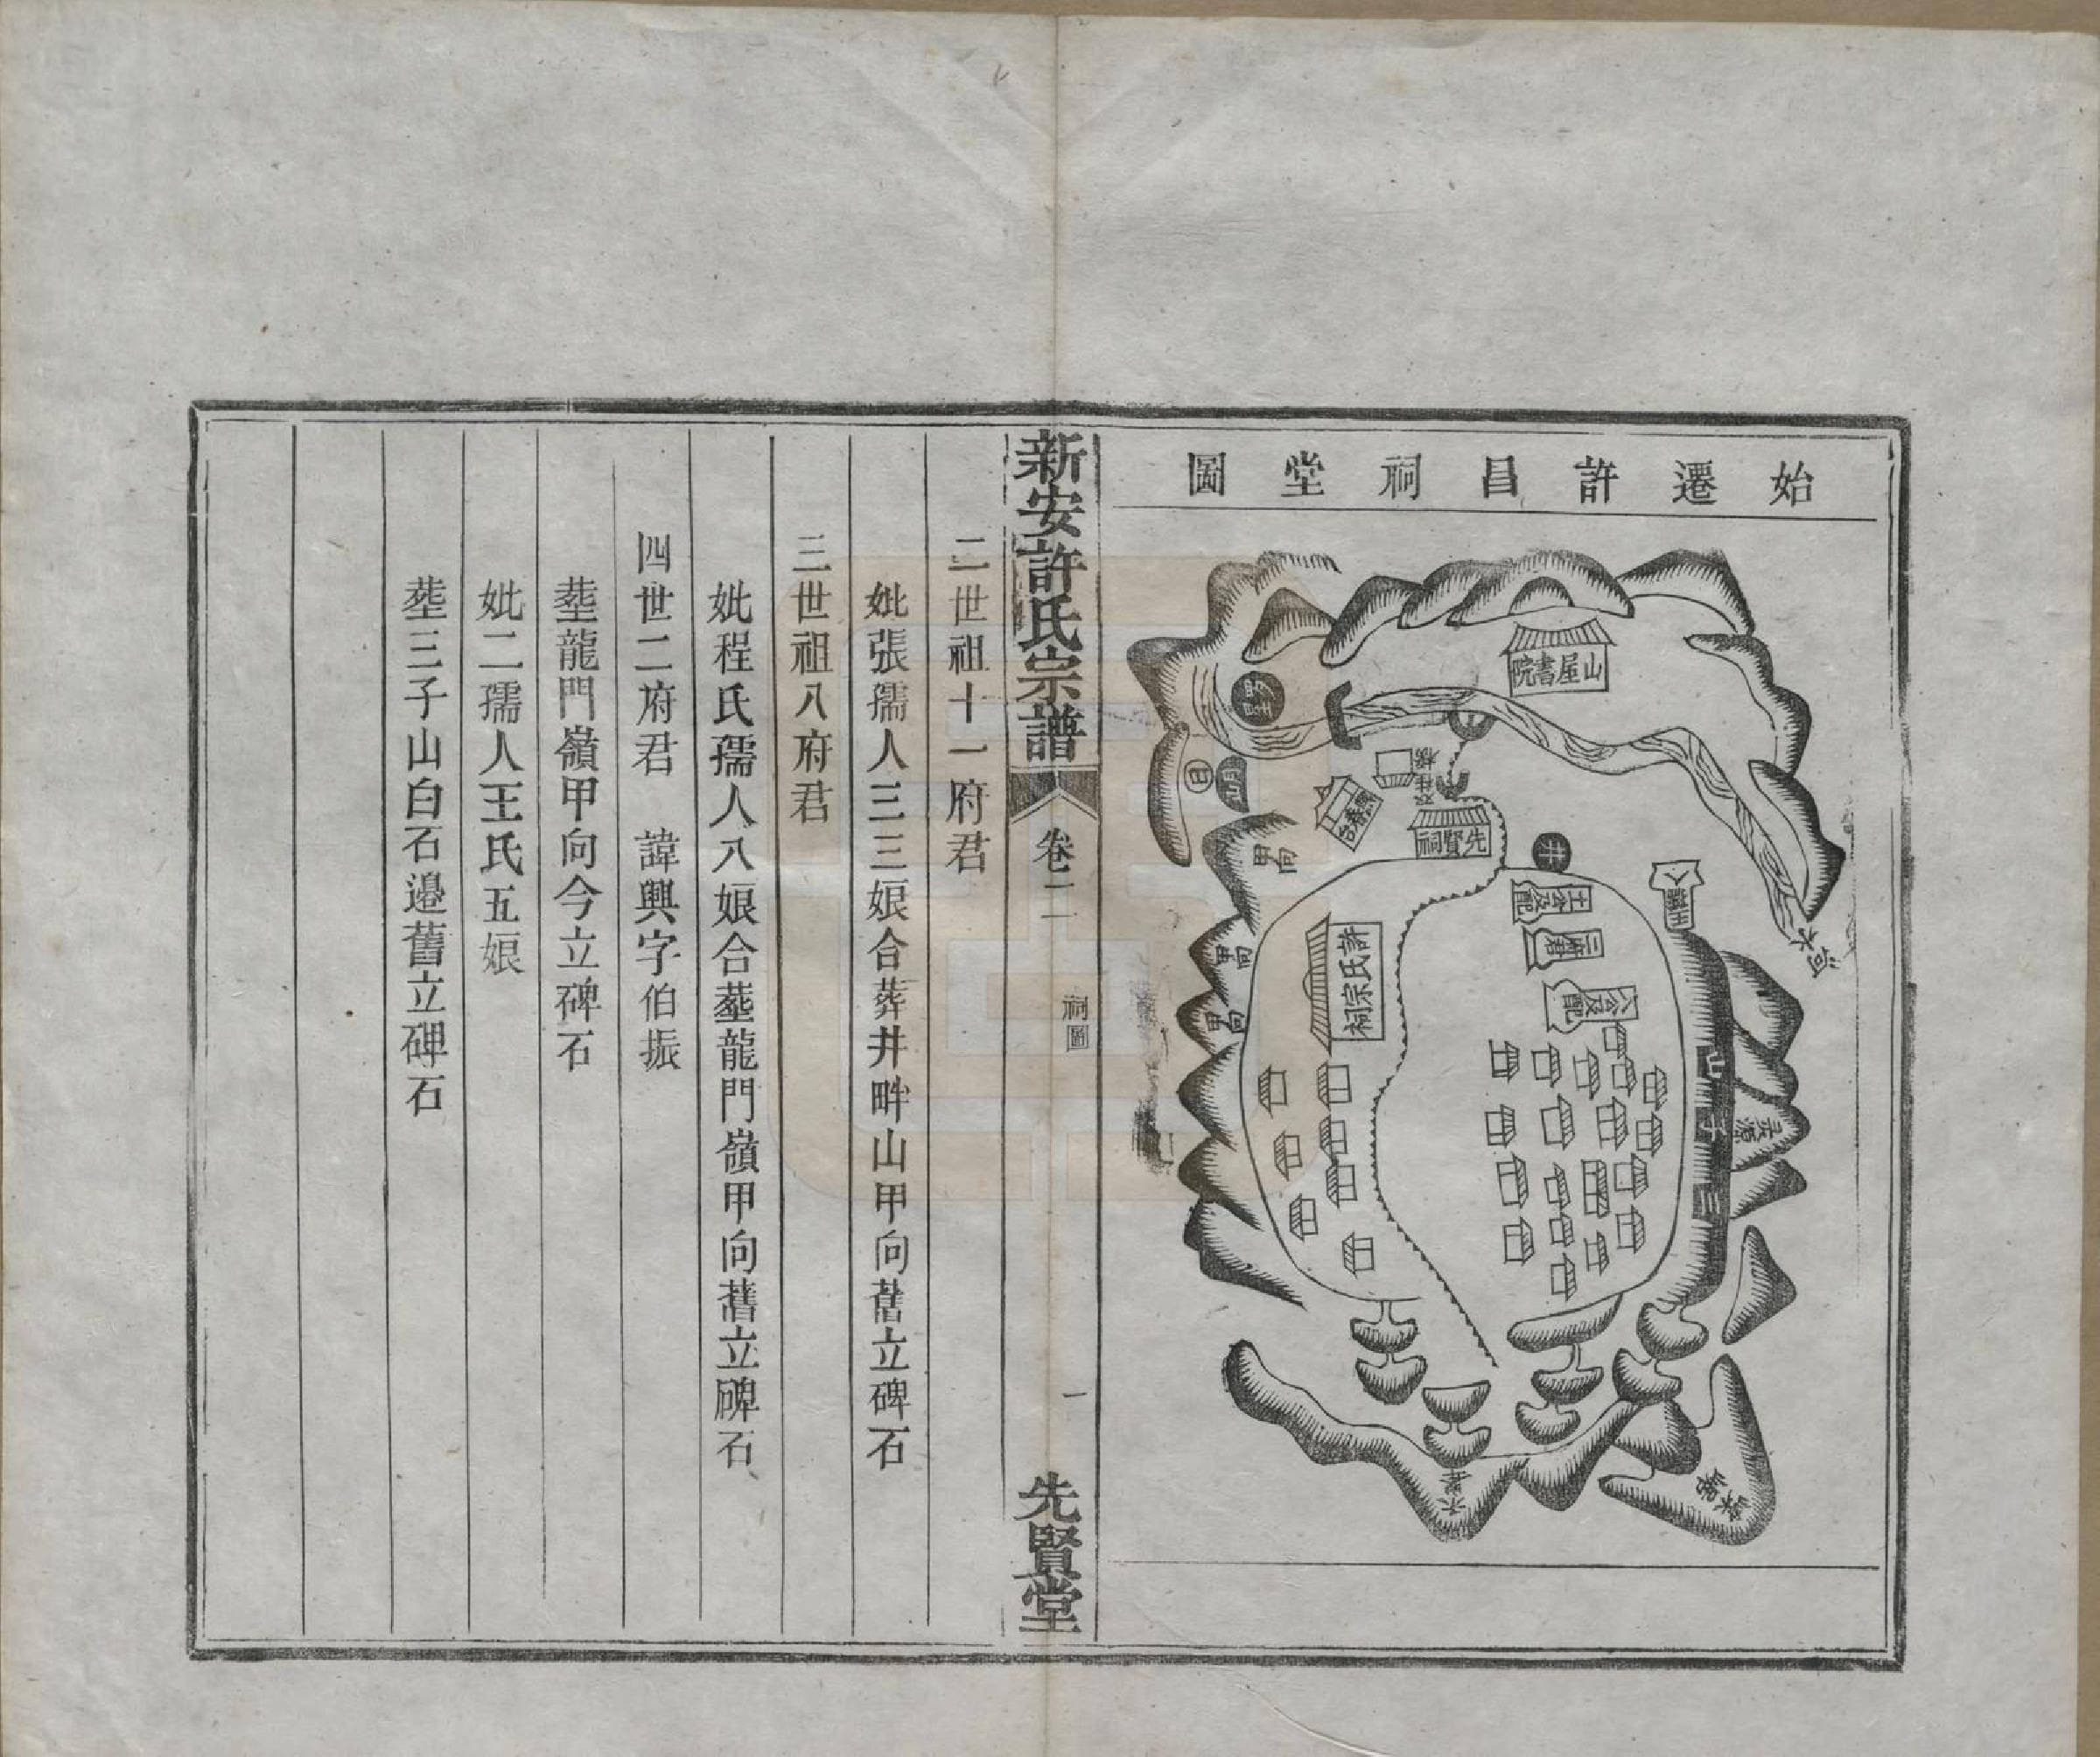 始遷許昌祠堂圖
山屋書院
先賢祠
井
許氏宗祠
河水
十公及配
二府君
八公及配
三子山
日
新安許氏宗譜
卷二
祠圖
一
先賢堂
二世祖十一府君
妣張孺人三三娘合葬井畔山甲向舊立碑石
三世祖八府君
妣程氏孺人八娘合塟龍門嶺甲向舊立碑石
四世二府君 諱興字伯振
塟龍門嶺甲向今立碑石
妣二孺人王氏五娘
塟三子山白石邉舊立碑石